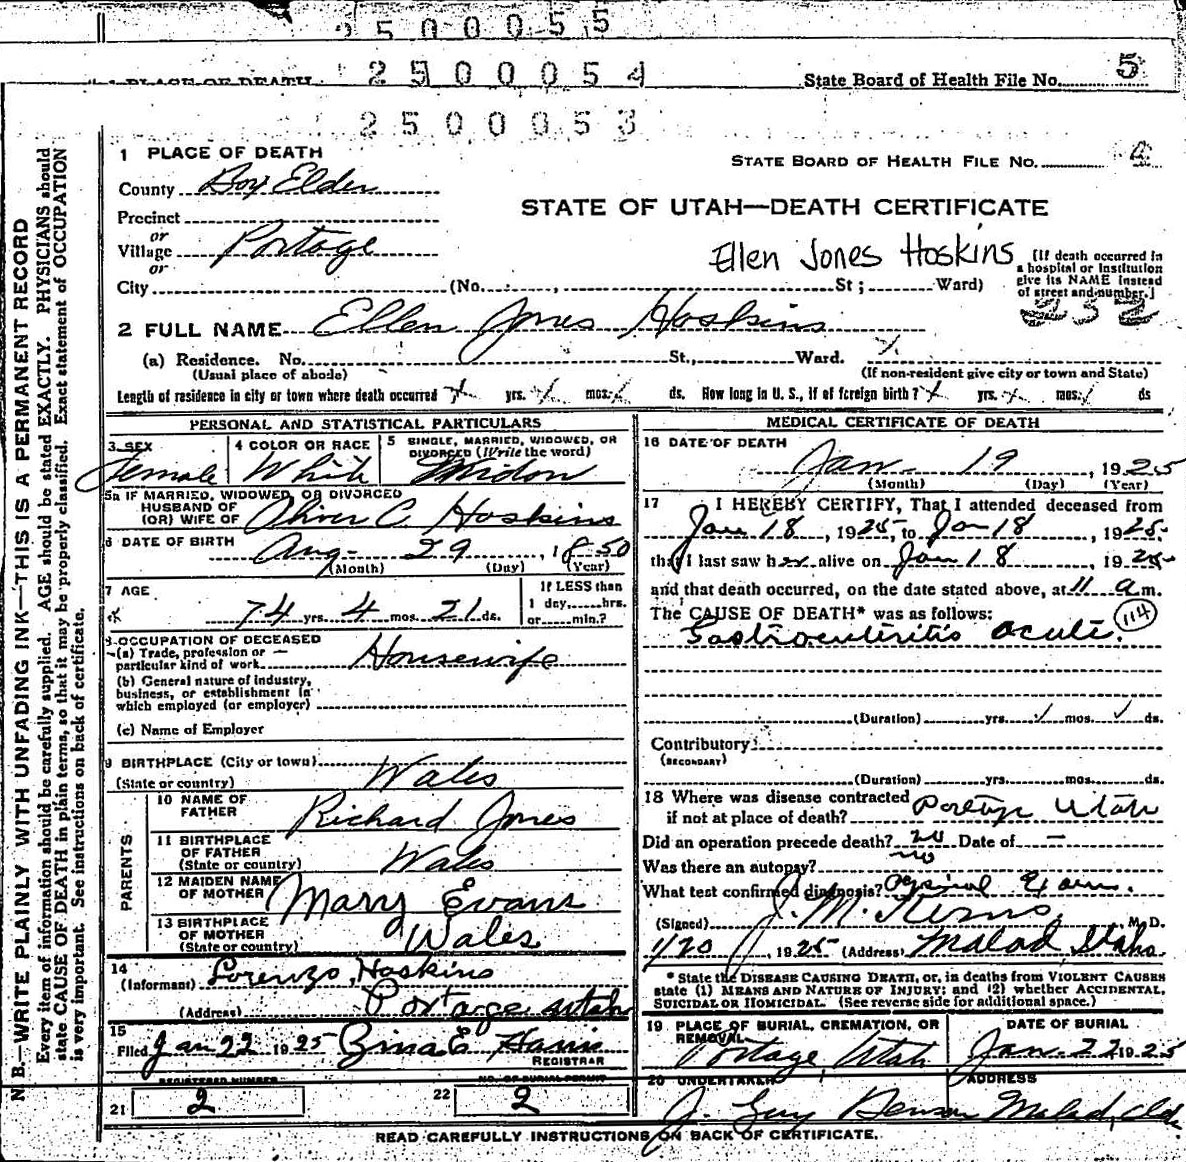 2500055
1 PLACE OF DEATH 2500054 State Board of Health File No. 5
2500053
1 PLACE OF DEATH
STATE BOARD OF HEALTH FILE NO. 4
County Box Elder
STATE OF UTAH—DEATH CERTIFICATE
Precinct
or
Village Portage
or
Ellen Jones Hoskins
[If death occurred in
a hospital or institution
give its NAME instead
of street and number.]
City (No. , St; Ward)
232
2 FULL NAME Ellen Jones Hoskins
(a) Residence. No. St., Ward.
(Usual place of abode) (If non-resident give city or town and State)
Length of residence in city or town where death occurred yrs. mos. ds. How long in U. S., if of foreign birth? yrs. mos. ds
PERSONAL AND STATISTICAL PARTICULARS
3 SEX
Female
4 COLOR OR RACE
White
5 SINGLE, MARRIED, WIDOWED, OR
DIVORCED (Write the word)
Widow
5a IF MARRIED, WIDOWED, OR DIVORCED
HUSBAND OF
(OR) WIFE OF Oliver C. Hoskins
6 DATE OF BIRTH Aug- 29, 1850
(Month) (Day) (Year)
7 AGE
74 yrs. 4 mos. 21 ds.
If LESS than
1 day, hrs.
or min.?
8 OCCUPATION OF DECEASED
(a) Trade, profession or
particular kind of work Housewife
(b) General nature of industry,
business, or establishment in
which employed (or employer)
(c) Name of Employer
9 BIRTHPLACE (City or town)
(State or country) Wales
PARENTS
10 NAME OF
FATHER Richard Jones
11 BIRTHPLACE
OF FATHER
(State or country) Wales
12 MAIDEN NAME
OF MOTHER Mary Evans
13 BIRTHPLACE
OF MOTHER
(State or country) Wales
14
(Informant) Lorenzo Hoskins
(Address) Portage Utah
15
Filed Jan 22 1925 Zina E Harris
REGISTRAR
REGISTERED NUMBER
21 2
NO. OF BURIAL PERMIT
22 2
MEDICAL CERTIFICATE OF DEATH
16 DATE OF DEATH
Jan- 19, 1925
(Month) (Day) (Year)
17 I HEREBY CERTIFY, That I attended deceased from
Jan 18, 1925, to Jan 18, 1925
that I last saw her alive on Jan 18, 1925
and that death occurred, on the date stated above, at 11 a m.
The CAUSE OF DEATH* was as follows:
114
Gastroenteritis acute.
(Duration) yrs. mos. ds.
Contributory
(SECONDARY)
(Duration) yrs. mos. ds.
18 Where was disease contracted
if not at place of death? Portage Utah
Did an operation precede death? no Date of —
Was there an autopsy? no
What test confirmed diagnosis?
(Signed) J. M. Kerns, M. D.
1/20, 1925 (Address) Malad Idaho
* State the DISEASE CAUSING DEATH, or, in deaths from VIOLENT CAUSES
state (1) MEANS AND NATURE OF INJURY; and (2) whether ACCIDENTAL,
SUICIDAL OR HOMICIDAL. (See reverse side for additional space.)
19 PLACE OF BURIAL, CREMATION, OR
REMOVAL
Portage, Utah
DATE OF BURIAL
Jan. 22 1925
20 UNDERTAKER
J. Guy Benson
ADDRESS
Malad, Ida.
READ CAREFULLY INSTRUCTIONS ON BACK OF CERTIFICATE.
N. B.—WRITE PLAINLY WITH UNFADING INK—THIS IS A PERMANENT RECORD
Every item of information should be carefully supplied. AGE should be stated EXACTLY. PHYSICIANS should
state CAUSE OF DEATH in plain terms, so that it may be properly classified. Exact statement of OCCUPATION
is very important. See instructions on back of certificate.